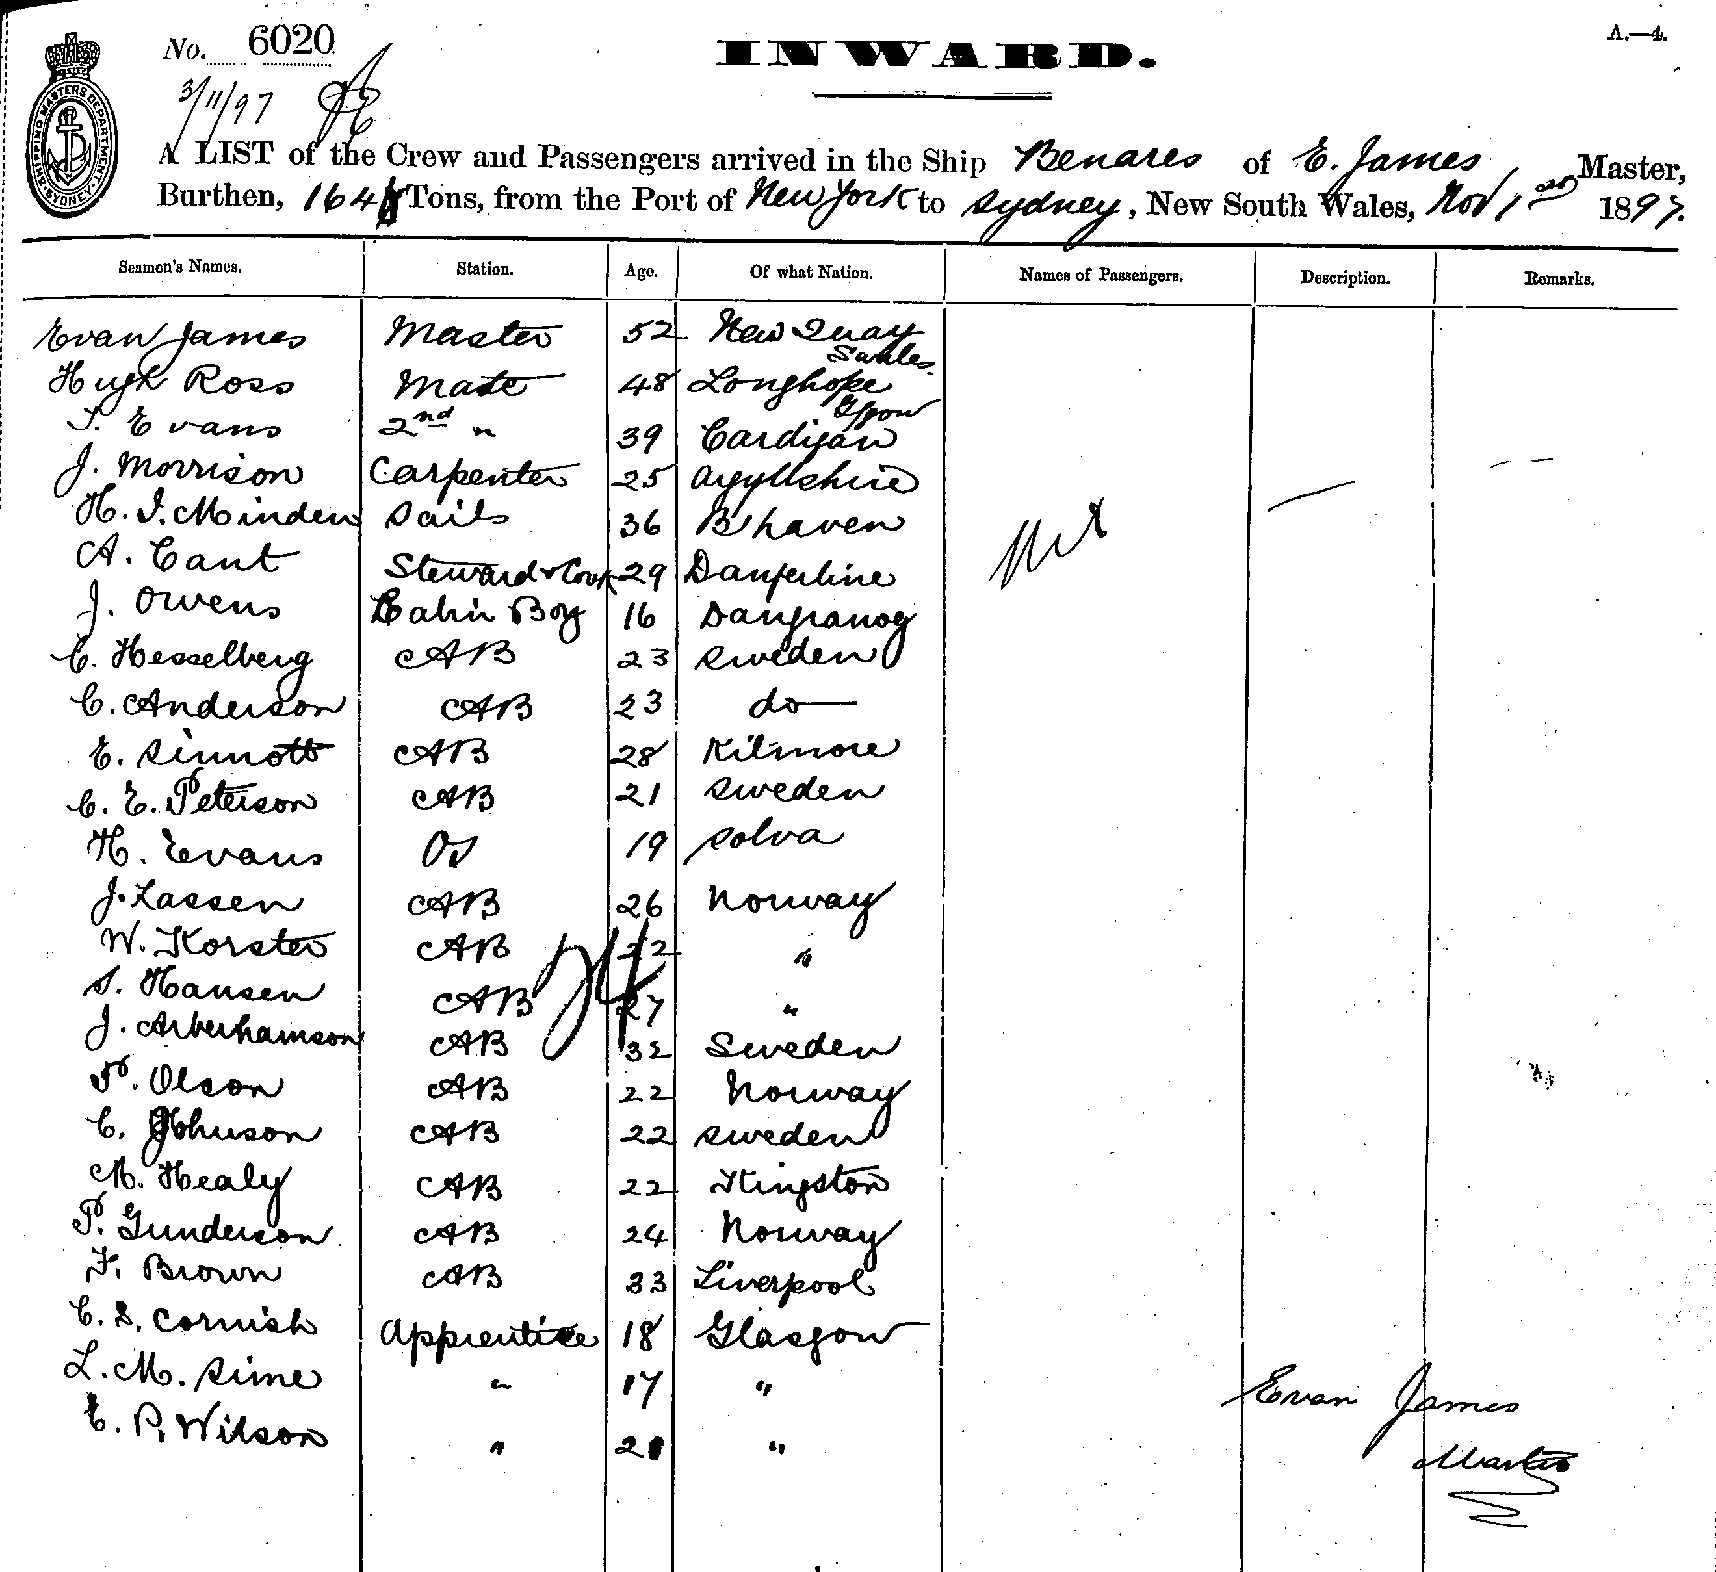 No. 6020
A.—4.
INWARD.
3/11/97
SHIPPING MASTERS DEPARTMENT SYDNEY
A LIST of the Crew and Passengers arrived in the Ship Benares of E. James Master,
Burthen, 164 Tons, from the Port of New York to Sydney, New South Wales, Nov 1 1897.
Seamen's Names. Station. Age. Of what Nation. Names of Passengers. Description. Remarks.
Evan James Master 52 New Quay
Hugh Ross Mate 48 Longhope
Evans 2nd " 39 Cardigan
J. Morrison Carpenter 25 Argyllshire
H. I. Minden Sails 36 B'haven
Nil
A. Cant Steward & Cook 29
J. Owens Cabin Boy 16
C. Hesselberg AB 23 Sweden
C. Anderson AB 23 do
E. Sinnott AB 28 Kilmore
C. E. Peterson AB 21 Sweden
H. Evans OS 19 Solva
J. Lassen AB 26 Norway
W. Korster AB 22 "
S. Hansen AB 27 "
24
J. Arberhamson AB 32 Sweden
P. Olson AB 22 Norway
C. Johnson AB 22 Sweden
M. Healy AB 22 Kingston
P. Gunderson AB 24 Norway
F. Brown AB 33 Liverpool
C. S. Cornish Apprentice 18 Glasgow
L. M. Sime " 17 "
E. P. Wilson " 20 "
Evan James
Master